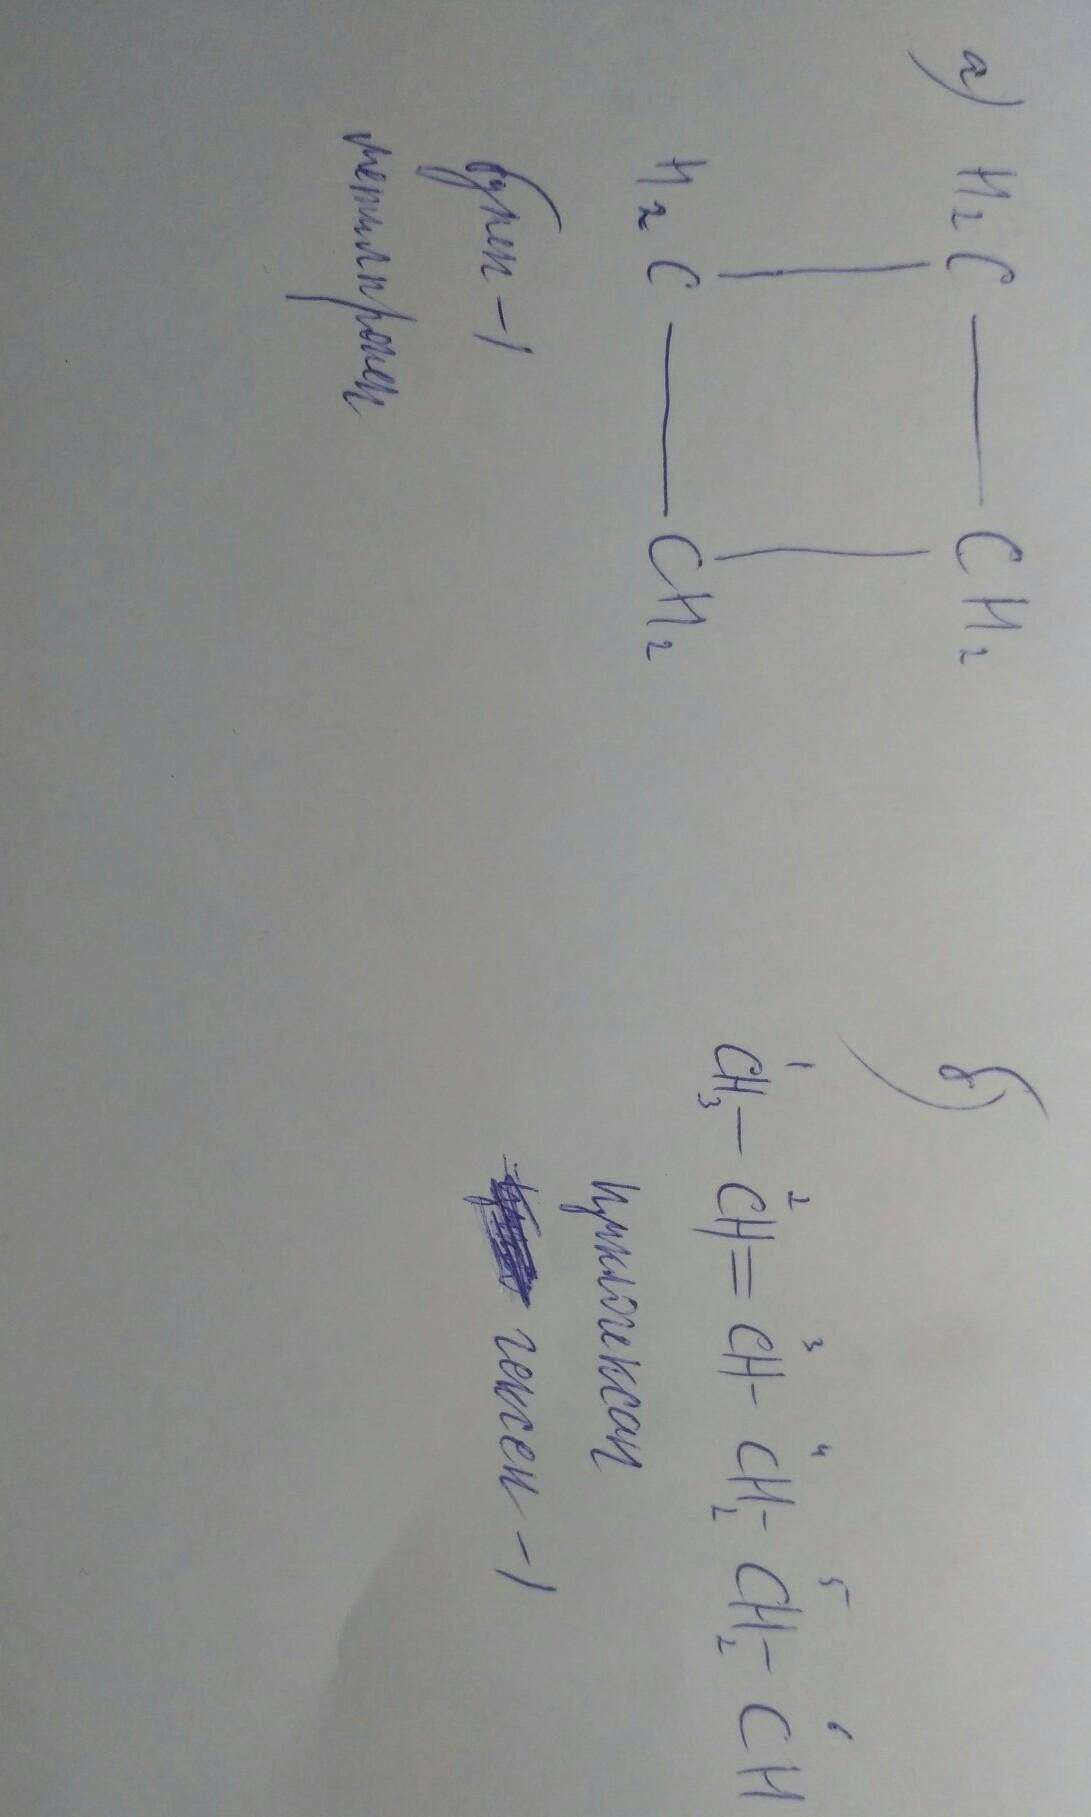 а) H₂C — CH₂
| |
H₂C — CH₂
бутен-1
метилпропен
б)
1 2 3 4 5 6
CH₃ — CH = CH - CH₂ - CH₂ - CH
циклогексан
гексен-1